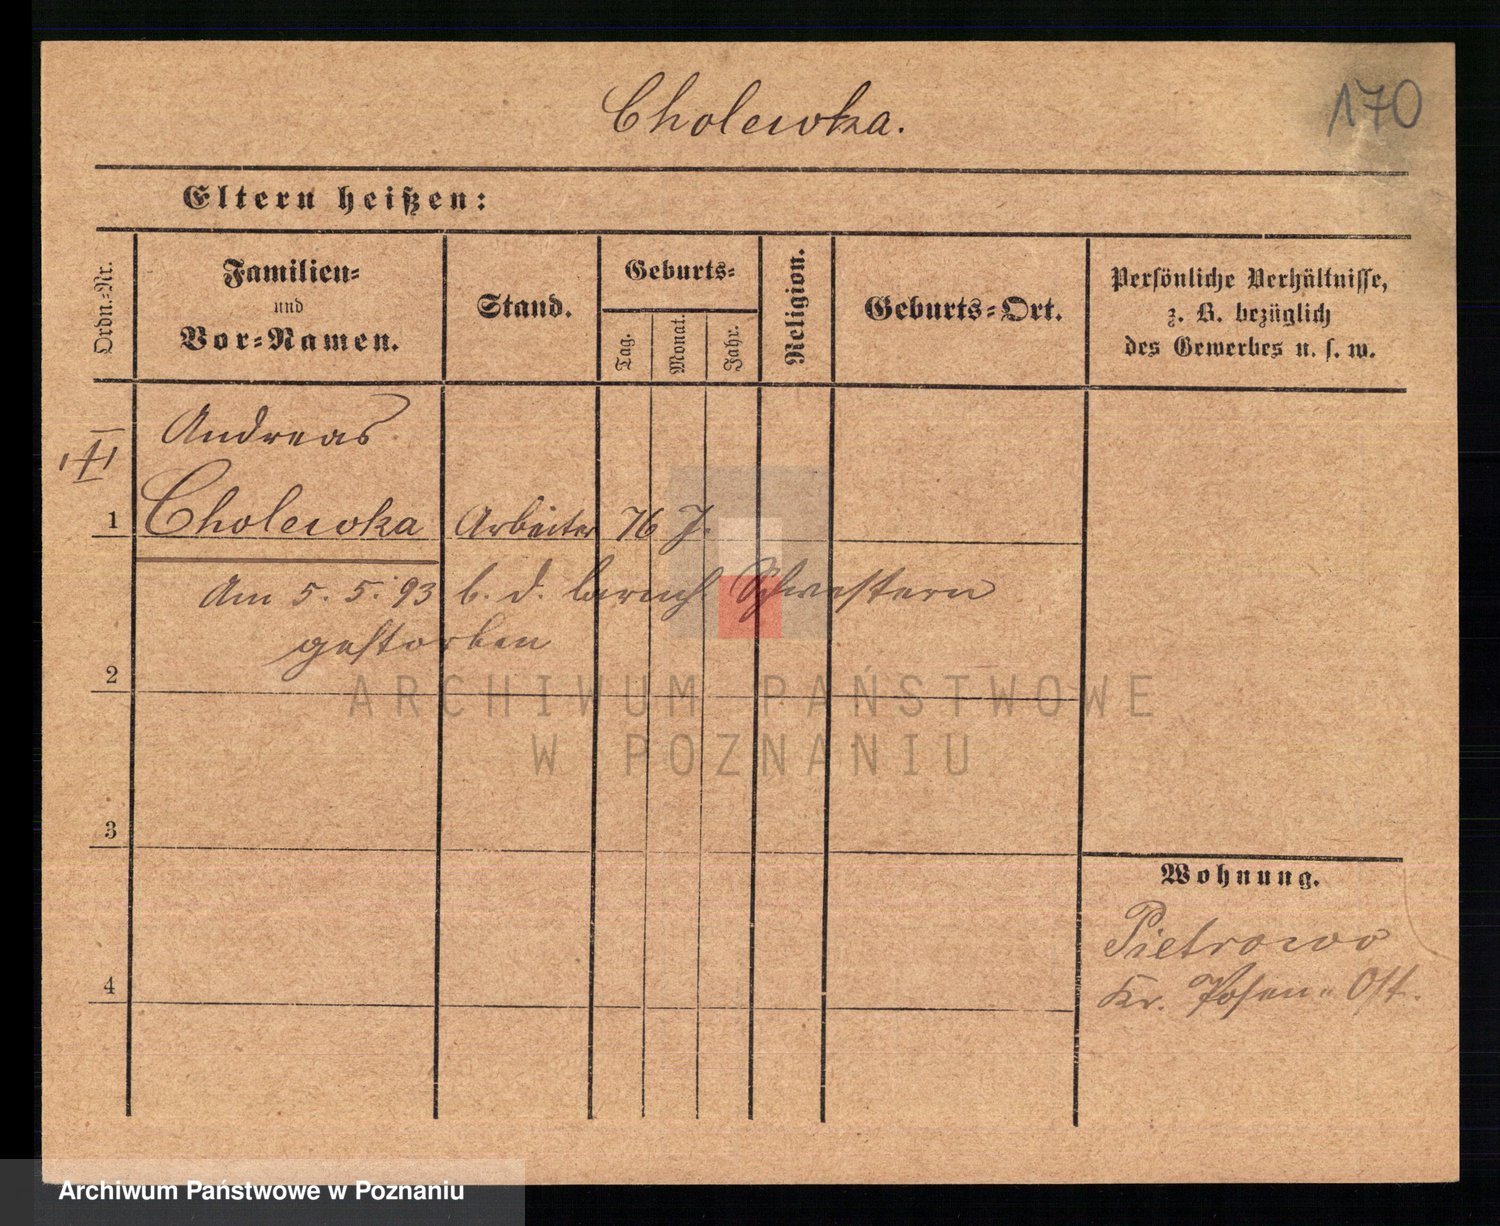 Cholewka.
170
Eltern heißen:
Ordn.-Nr.
Familien-
und
Vor-Namen.
Stand.
Geburts-
Tag.
Monat.
Jahr.
Religion.
Geburts-Ort.
Persönliche Verhältnisse,
z. B. bezüglich
des Gewerbes u. s. w.
Andreas
1 Cholewka Arbeiter 76 J.
Am 5. 5. 93 b. d. barmh. Schwestern
gestorben
2
ARCHIWUM PAŃSTWOWE
W POZNANIU
3
Wohnung.
Pietrowo
Kr. Posen-Ost.
4
Archiwum Państwowe w Poznaniu